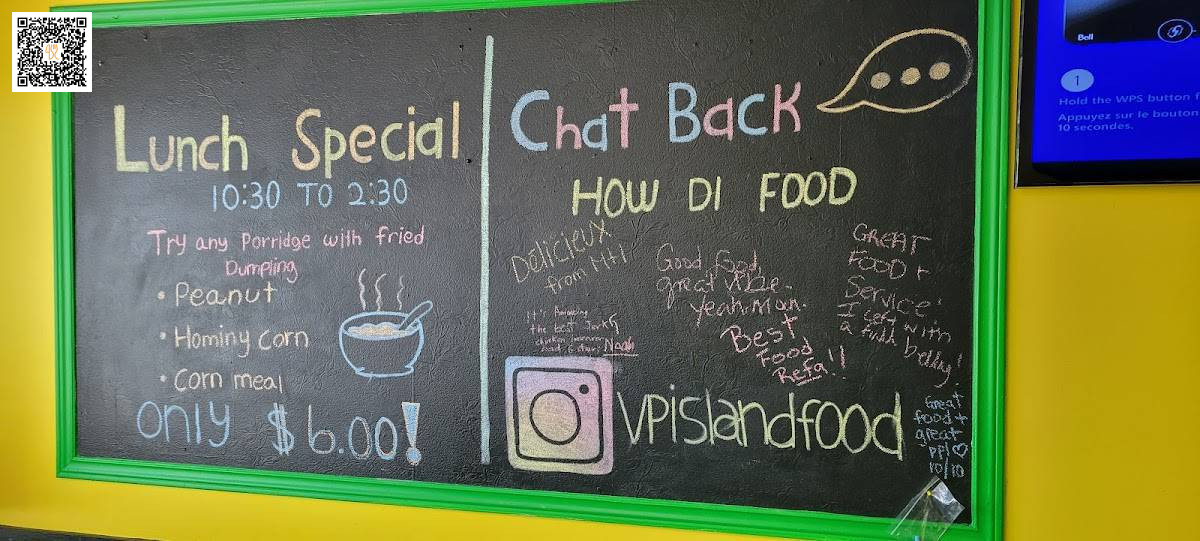 Lunch Special
10:30 TO 2:30
Try any Porridge with fried
Dumpling
• Peanut
• Hominy corn
• Corn meal
only $6.00!
Chat Back
HOW DI FOOD
Délicieux
from Mtl
Good food,
great vibe.
yeah mon.
GREAT
FOOD +
Service!
I left with
a full belley!
It's Amazing
the best Jerk
chicken
Noah
Best
Food
Refa!!
vpislandfood
Great
food +
great
ppl ♡
10/10
Bell
1
Hold the WPS button f
Appuyez sur le bouton
10 secondes.